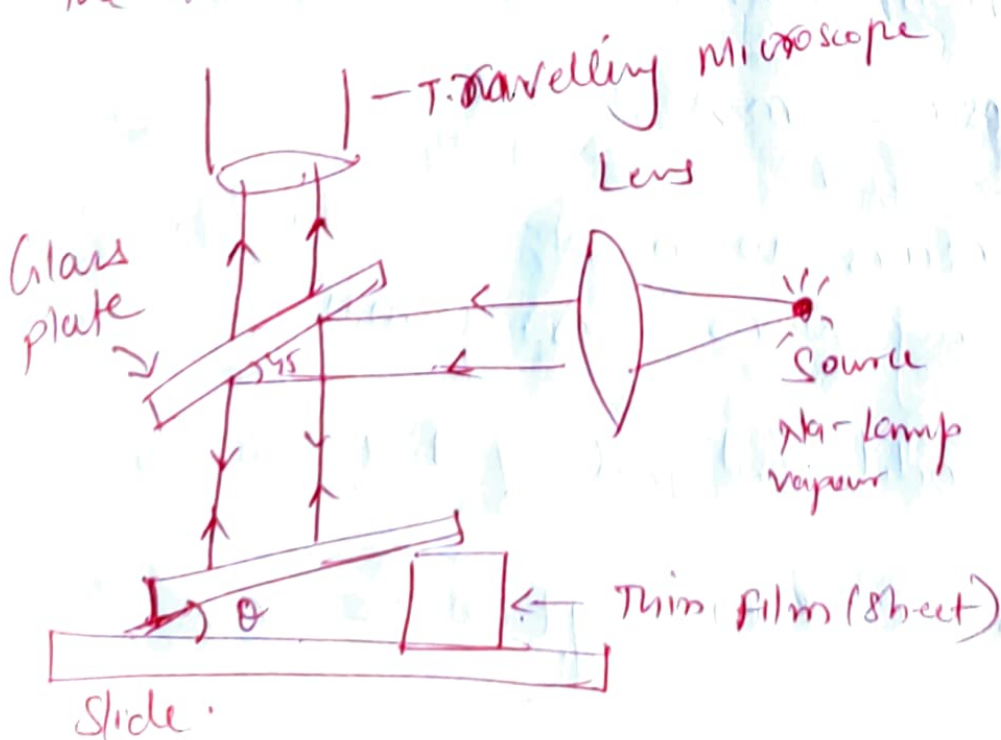 T.ravelling Microscope
Lens
Glass
plate
45
Source
Na-lamp
vapour
θ
Thin film (sheet)
Slide.